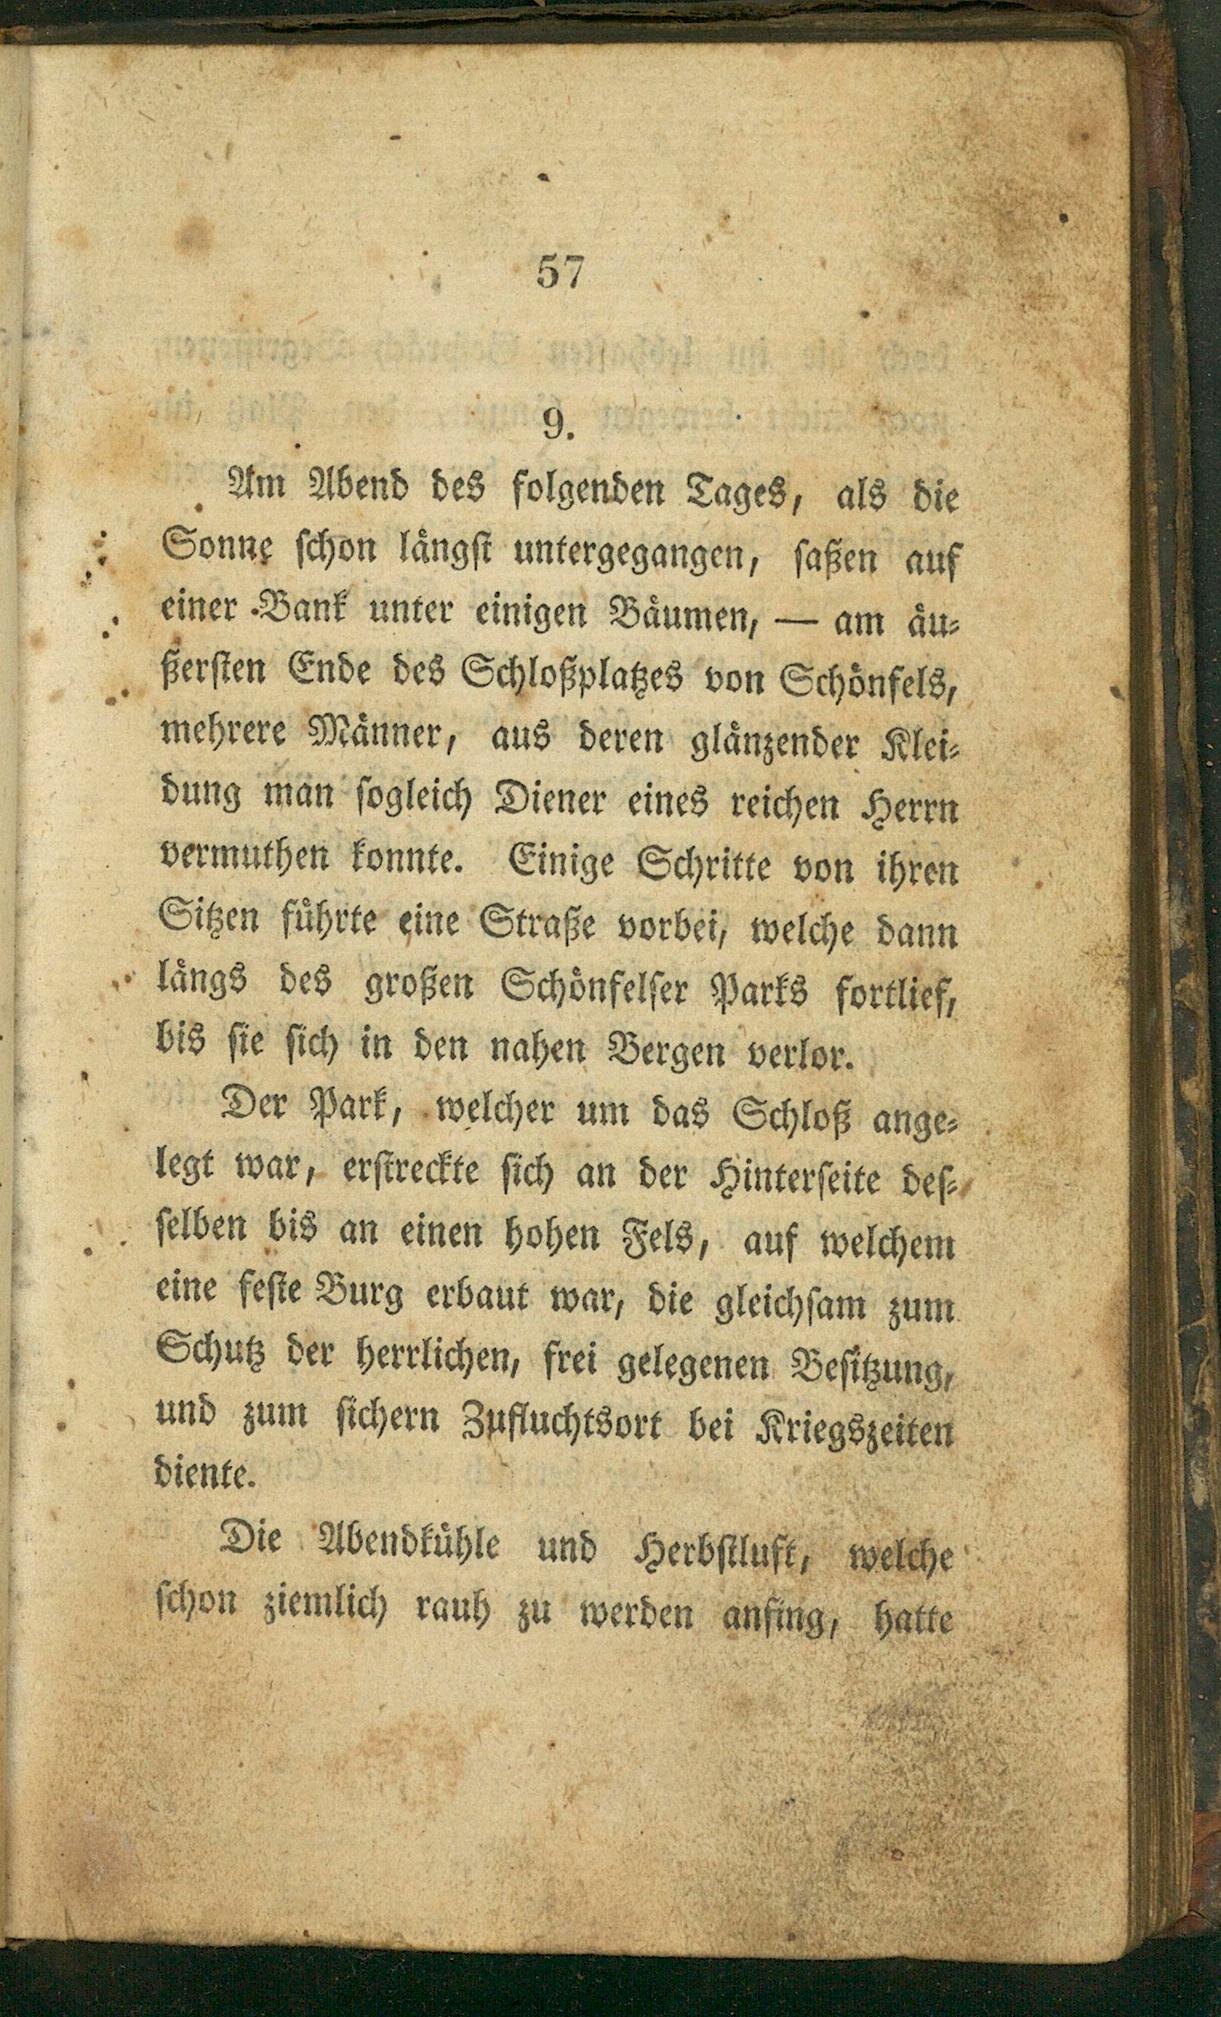 57
9.
Am Abend des folgenden Tages, als die
Sonne schon längst untergegangen, saßen auf
einer Bank unter einigen Bäumen, — am äu-
ßersten Ende des Schloßplatzes von Schönfels,
mehrere Männer, aus deren glänzender Klei-
dung man sogleich Diener eines reichen Herrn
vermuthen konnte. Einige Schritte von ihren
Sitzen führte eine Straße vorbei, welche dann
längs des großen Schönfelser Parks fortlief,
bis sie sich in den nahen Bergen verlor.
Der Park, welcher um das Schloß ange-
legt war, erstreckte sich an der Hinterseite des-
selben bis an einen hohen Fels, auf welchem
eine feste Burg erbaut war, die gleichsam zum
Schutz der herrlichen, frei gelegenen Besitzung,
und zum sichern Zufluchtsort bei Kriegszeiten
diente.
Die Abendkühle und Herbstluft, welche
schon ziemlich rauh zu werden anfing, hatte